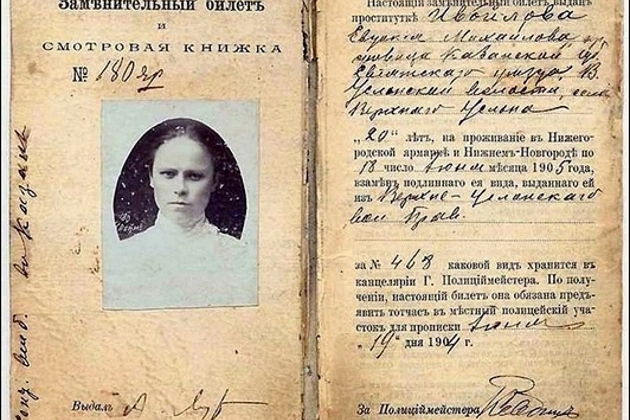 Замѣнительный билетъ
и
СМОТРОВАЯ КНИЖКА
№ 180яр
Выдалъ
Настоящій замѣнительный билетъ выданъ
проституткѣ Ивойлова
Евдокія Михайлова, кр.
Казанской губ.
Свіяжскаго уѣзда, В.
Услонской волости, села
Верхняго Услона
„20" лѣтъ, на проживаніе въ Нижего-
родской ярмаркѣ и Нижнемъ-Новгородѣ по
18 число Іюня мѣсяца 1905 года,
взамѣнъ подлиннаго ея вида, выданнаго ей
изъ Верхне-Услонскаго
вол. Прав.
за № 468 каковой видъ хранится въ
канцеляріи Г. Полиціймейстера. По полу-
ченіи, настоящій билетъ она обязана предъ-
явить тотчасъ въ мѣстный полицейскій уча-
стокъ для прописки Іюня
„19" дня 1904 г.
За Полиціймейстера